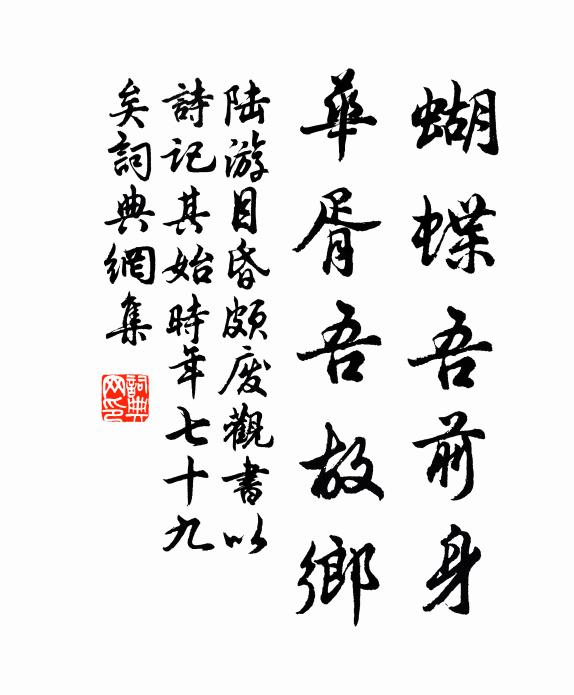 蝴蝶吾前身
華胥吾故鄉
陆游目昏頗废觀書以
詩記其始時年七十九
矣詞典網集
詞典
网印